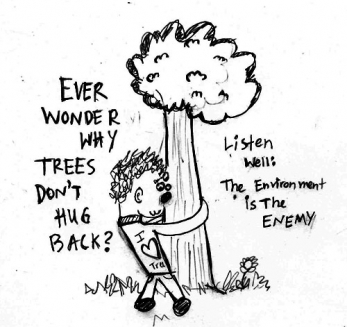 EVER
WONDER
WHY
TREES
DON'T
HUG
BACK?
Listen
Well:
The Environment
is The
ENEMY
I
Tre